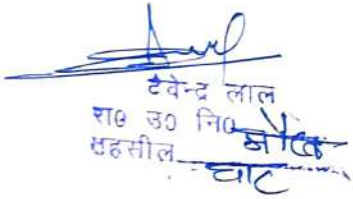 देवेन्द्र लाल
रा० उ० नि०
तहसील घाट